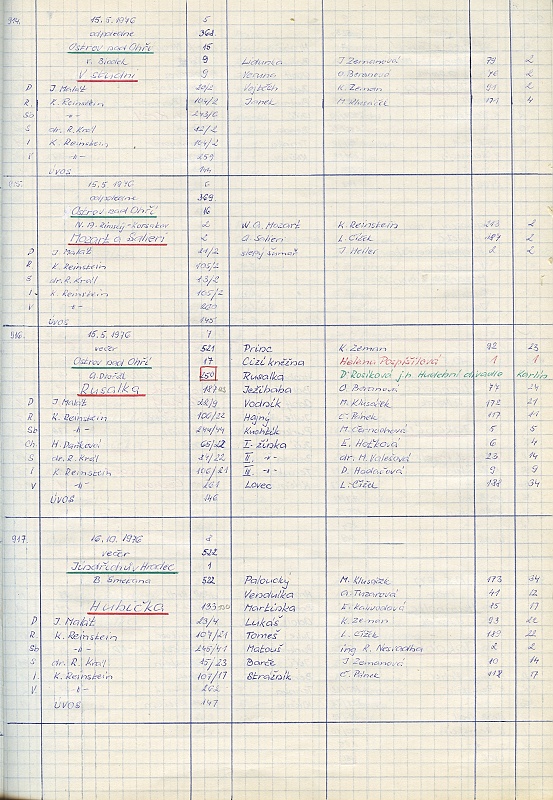 914. 15.5.1976 5
odpoledne 368
Ostrov nad Ohří 15
V. Blodek 9 Lidunka J. Zemanová 79 2
V studni 9 Veruna O. Beranová 76 2
D J. Malát 20/2 Vojtěch K. Zeman 91 2
R. K. Reinstein 104/2 Janek M. Klusáček 171 4
Sb -"- 243/6
S dr. R. Král 12/2
I K. Reinstein 104/2
V -"- 259
ÚVOS 144
915. 15.5.1976 6
odpoledne 369
Ostrov nad Ohří 16
N. A. Rimskij-Korsakov 2 W. A. Mozart K. Reinstein 213 2
Mozart a Salieri 2 A. Salieri L. Čížek 187 2
D J. Malát 21/2 slepý šumař J. Heller 2 2
R. K. Reinstein 105/2
S dr. R. Král 13/2
I. K. Reinstein 105/2
V -"- 260
ÚVOS 145
916. 15.5.1976 7
večer 521 Princ K. Zeman 92 23
Ostrov nad Ohří 17 Cizí kněžna Helena Pospíšilová 1 1
A. Dvořák 250 Rusalka Dr Rosíková j.h. Hudební divadlo Karlín
Rusalka 187 Ježibaba O. Beranová 77 24
D J. Malát 22/9 Vodník M. Klusáček 172 21
R K. Reinstein 106/22 Hajný Č. Pánek 117 11
Sb -"- 244/44 Kuchtík M. Černohová 5 5
Ch. H. Daňková 65/22 I. žínka E. Hošková 6 4
S dr. R. Král 21/22 II. -"- dr. M. Valešová 23 14
I K. Reinstein 106/21 III. -"- D. Hodačová 9 9
V -"- 261 Lovec L. Čížek 188 34
ÚVOS 146
917. 16.10.1976 8
večer 522
Jindřichův Hradec 1
B. Smetana 522 Paloucký M. Klusáček 173 34
Vendulka A. Tuzarová 41 12
Hubička 133 Martinka 35 17
D J. Malát 23/4 Lukáš K. Zeman 93 22
R. K. Reinstein 107/21 Tomeš L. Čížek 189 22
Sb -"- 245/41 Matouš ing R. Nesvadba 2 2
S dr. R. Král 15/23 Barče J. Zemanová 10 14
I. K. Reinstein 107/17 Strážník Č. Pánek 118 17
V -"- 262
ÚVOS 147